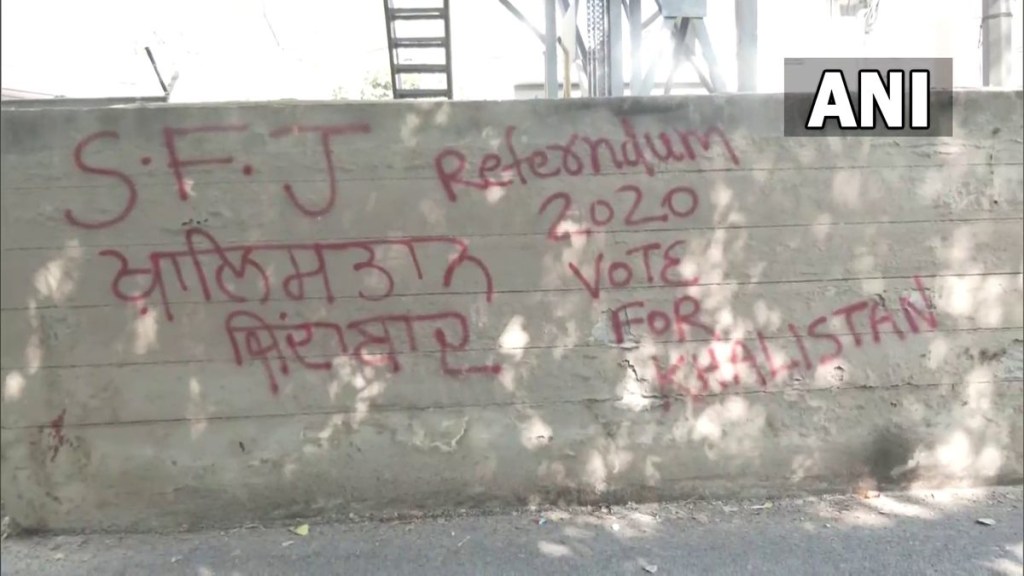 S.F.J
ਖਾਲਿਸਤਾਨ
ਜ਼ਿੰਦਾਬਾਦ
Referndum
2020
VOTE
FOR
KHALISTAN
ANI